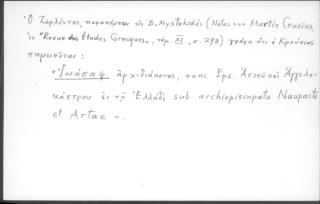 Ὁ Γερλάντος, παραπέμπων εἰς B. Mystakidès (Notes sur Martin Crusius,
ἐν "Revue des Études Grecques", τόμ. XI, σ. 298) γράφει ὅτι ὁ Κρούσιος
σημειοῦται:
"Ἰωάσαφ ἀρχιδιάκονος, nunc Eps. Ἀετοῦ καὶ Ἀγγελο-
κάστρου ἐν τῇ Ἑλλάδι sub archiepiscopatu Naupacti
et Artae".